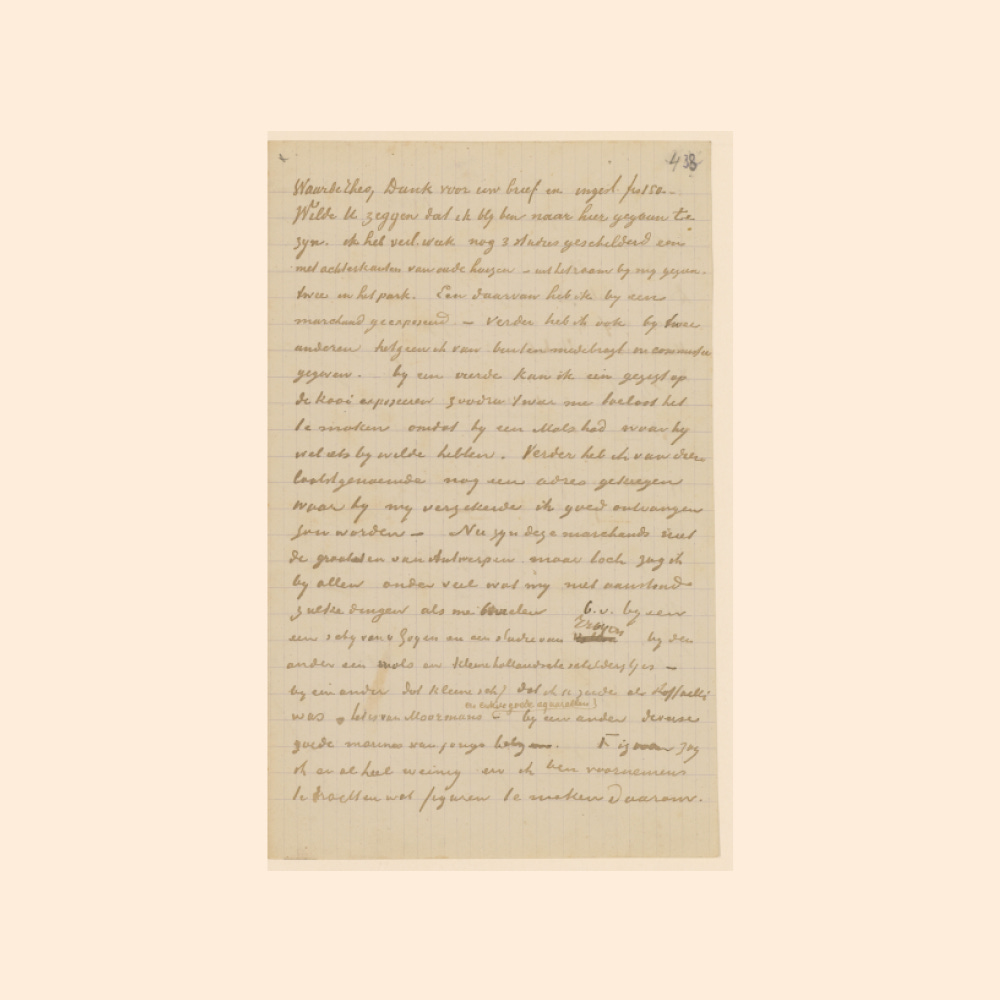 438
Waarde Theo, Dank voor uw brief en ingesl. fr 150.-
Wilde U zeggen dat ik bly ben naar hier gegaan te
zyn. ik heb verl. week nog 3 studies geschilderd een
met achterkanten van oude huizen – uit het raam by my gezien.
twee in het park. Een daarvan heb ik by een
marchand geexposeerd – Verder heb ik ook by twee
anderen hetgeen ik van buiten medebragt in commissie
gegeven. by een vierde kan ik een gezigt op
de kaai exposeeren zoodra 't weer me toelaat het
te maken omdat hy een Mols had waar hy
wel iets by wilde hebben. Verder heb ik van deze
laatstgenoemde nog een adres gekregen
waar hy my verzekerde ik goed ontvangen
zou worden – Nu zyn deze marchands niet
de grootsten van Antwerpen maar toch zag ik
by allen onder veel wat my niet aanstond
zulke dingen als me b.v. by een
een schy van v Goyen en een studie van
by den
ander een mols en kleine hollandsche schilderytjes –
by een ander dat kleine schy dat ik zoo goede als Raffaelli
en enkele goede aquarellen
was iets van Moormans – by een ander diverse
goede marines van jonge zag
ik er al heel weinig en ik ben voornemens
te trachten wat figuren te maken daarom.